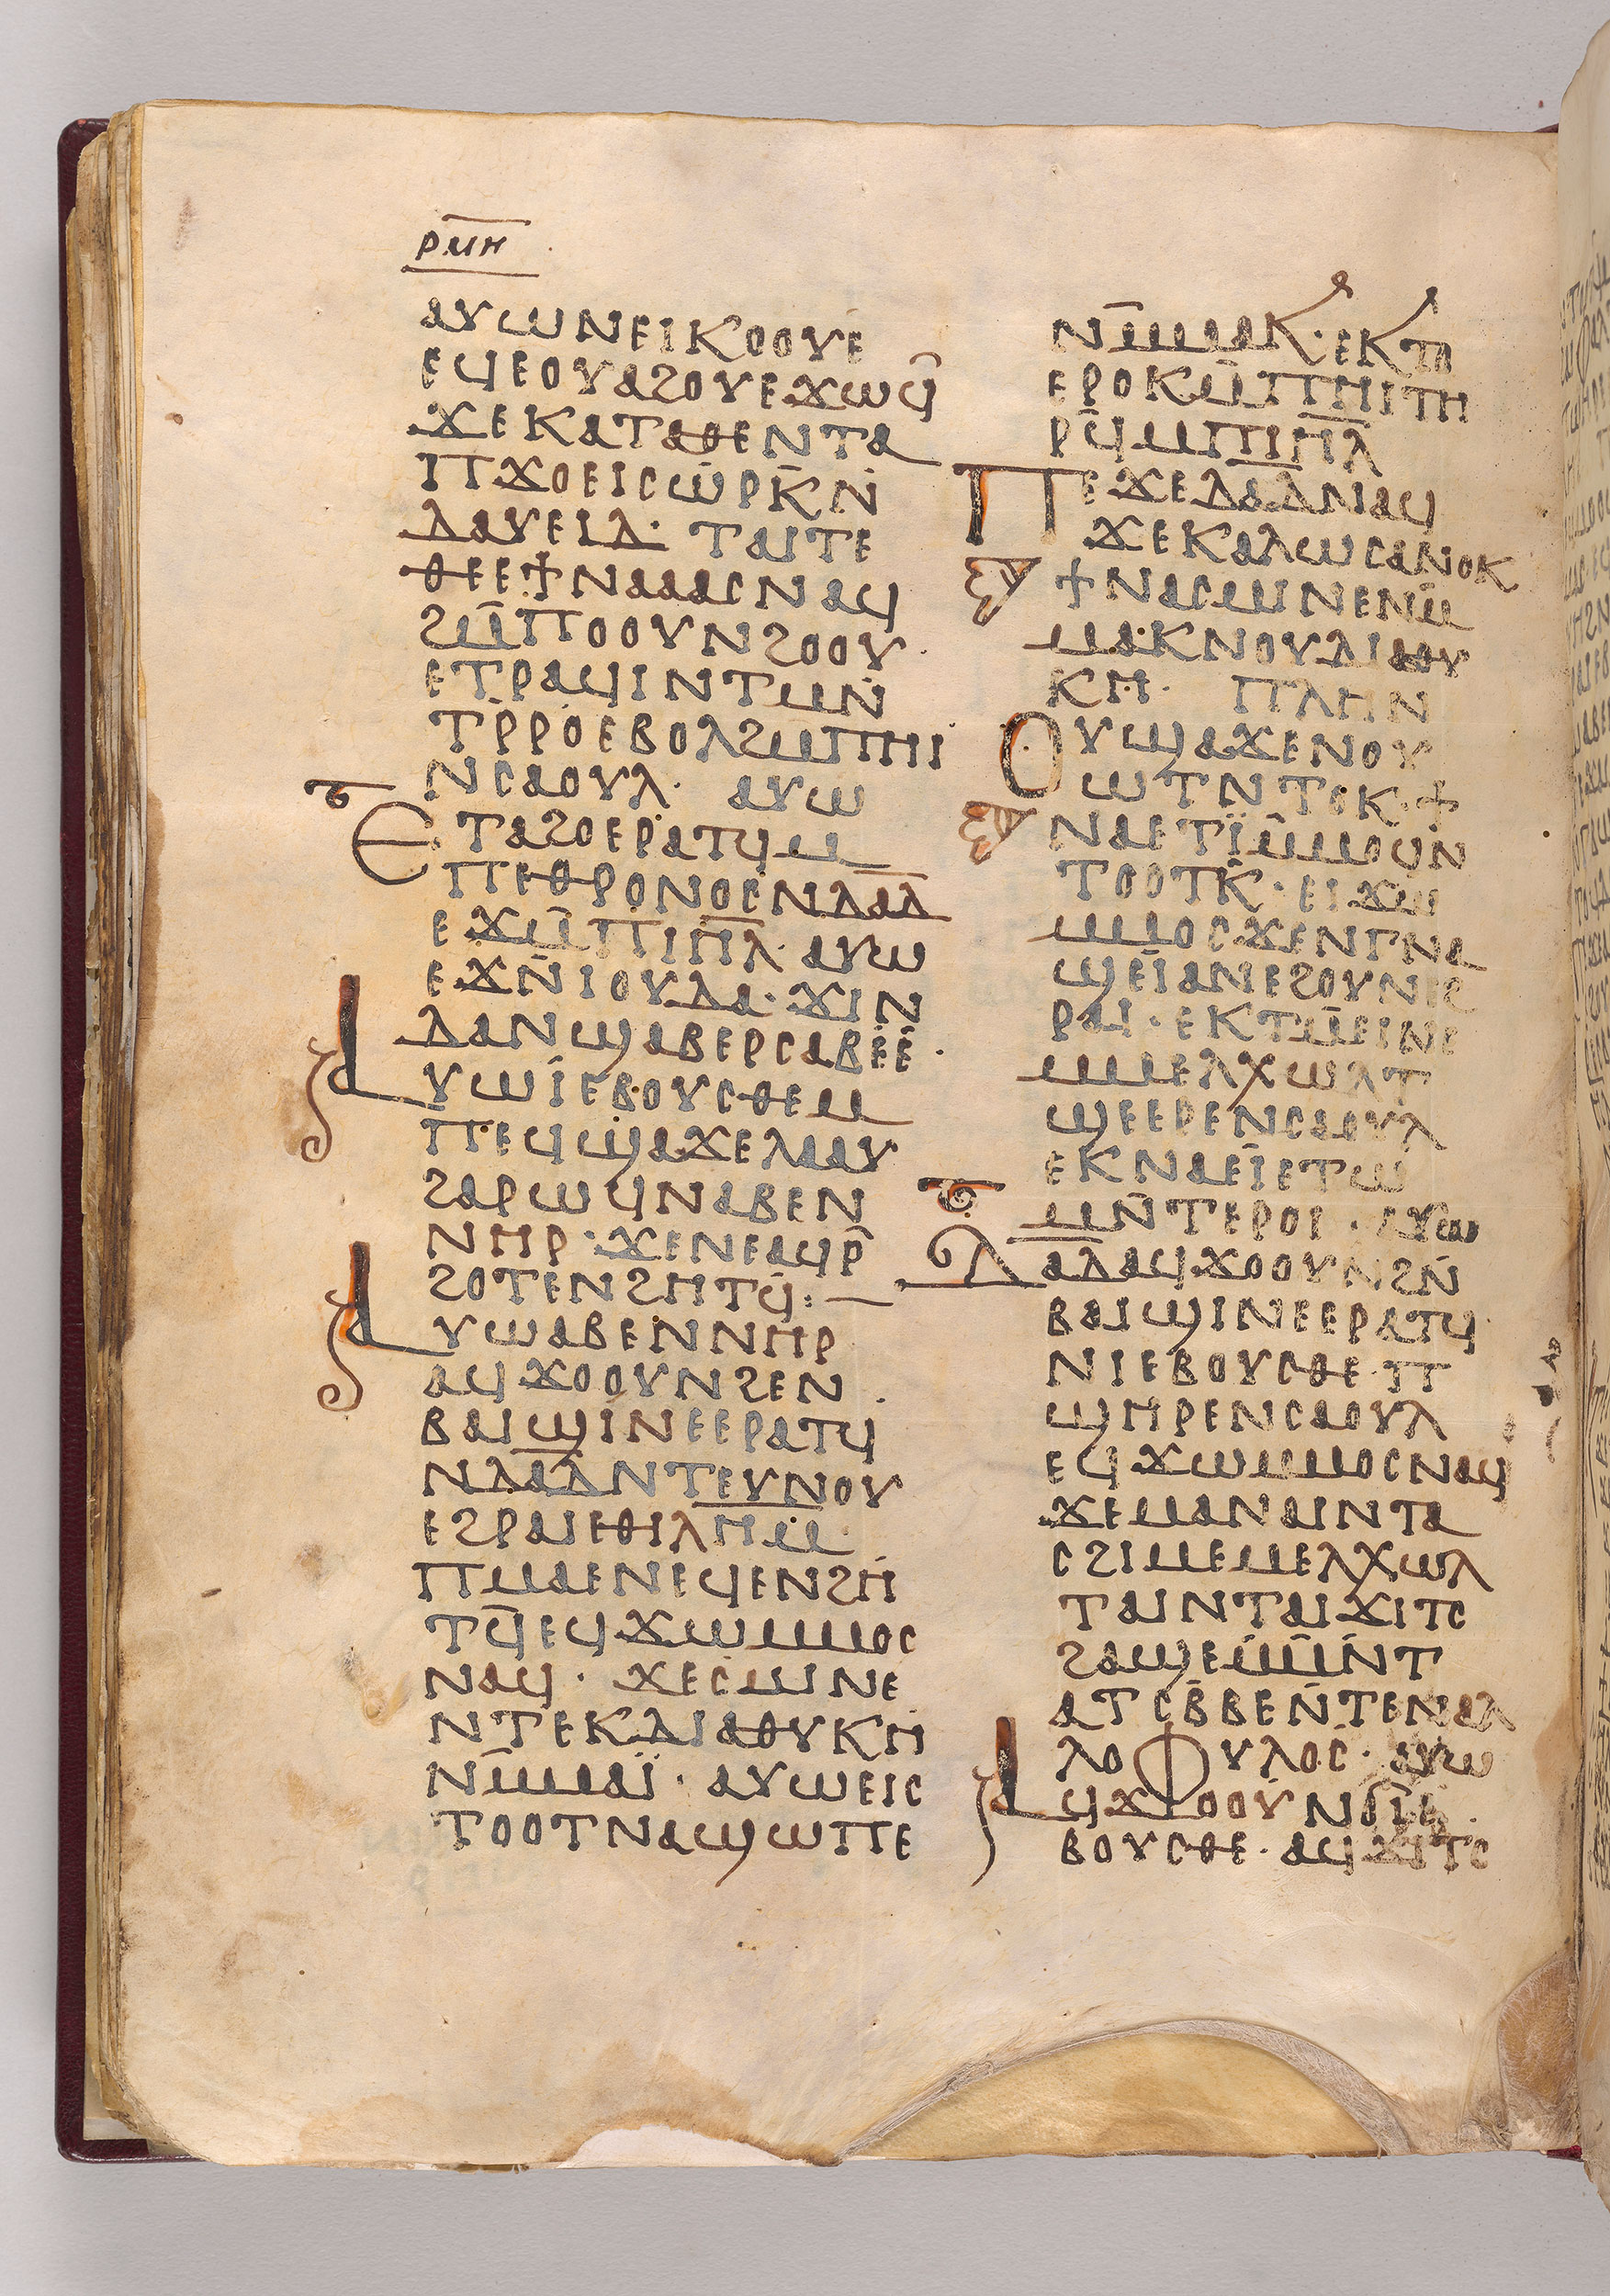 ⲣⲙⲏ
ⲁⲩⲱⲛⲉⲓⲕⲟⲟⲩⲉ
ⲉϥⲉⲟⲩⲁϩⲟⲩⲉϫⲱϥ̄
ϫⲉⲕⲁⲧⲁⲑⲉⲛⲧⲁ
ⲡϫⲟⲉⲓⲥⲱⲣⲕ̄ⲛ̄
ⲇⲁⲩⲉⲓⲇ· ⲧⲁⲓⲧⲉ
ⲑⲉⲉϯⲛⲁⲁⲁⲥⲛⲁϥ
ϩⲙ̄ⲡⲟⲟⲩⲛϩⲟⲟⲩ·
ⲉⲧⲣⲁϥⲓⲛⲧⲙⲛ̄
ⲧⲣ̄ⲣⲟⲉⲃⲟⲗϩⲙⲡⲏⲓ
ⲛⲥⲁⲟⲩⲗ· ⲁⲩⲱ
ⲉⲧⲁϩⲟⲉⲣⲁⲧϥⲙ
ⲡⲉⲑⲣⲟⲛⲟⲥⲛⲇⲁ̅ⲇ
ⲉϫⲙ̄ⲡⲓⲏ̅ⲗ· ⲁⲩⲱ
ⲉϫⲛ̄ⲓⲟⲩⲇⲁ· ϫⲓⲛ
ⲇⲁⲛϣⲁⲃⲉⲣⲥⲁⲃⲉⲉ·
ⲁⲩⲱⲓⲉⲃⲟⲩⲥⲑⲉⲙ
ⲡⲉϥϣⲁϫⲉⲗⲁⲁⲩ
ϩⲁⲣⲱϥⲛⲁⲃⲉⲛ
ⲛⲏⲣ· ϫⲉⲛⲉⲁϥⲣ̄
ϩⲟⲧⲉⲛϩⲏⲧϥ̄:—
ⲁⲩⲱⲁⲃⲉⲛⲛⲏⲣ
ⲁϥϫⲟⲟⲩⲛϩⲉⲛ
ⲃⲁⲓϣⲓⲛⲉⲉⲣⲁⲧϥ
ⲛⲇⲁ̅ⲇⲛⲧⲉⲩⲛⲟⲩ
ⲉϩⲣⲁⲓⲉⲑⲓⲗⲏ̅ⲙ
ⲡⲙⲁⲉⲛⲉϥⲉⲛϩⲏ
ⲧϥ̄ⲉϥϫⲱⲙⲙⲟⲥ
ⲛⲁϥ· ϫⲉⲥⲙⲓⲛⲉ
ⲛⲧⲉⲕⲇⲓⲁⲑⲩⲕⲏ
ⲛⲙ̄ⲙⲁⲓ̈· ⲁⲩⲱⲉⲓⲥ
ⲧⲟⲟⲧⲛⲁϣⲱⲡⲉ
ⲛⲙ̄ⲙⲁⲕ· ⲉⲕⲧⲟ
ⲉⲣⲟⲕⲙ̄ⲡⲏⲓⲧⲏ
ⲣϥ̄ⲙⲡⲓⲏ̅ⲗ
ⲡⲉϫⲉⲇⲁ̅ⲇⲛⲁϥ
ϫⲉⲕⲁⲗⲱⲥⲁⲛⲟⲕ
ϯⲛⲁⲥⲙⲓⲛⲉⲛⲙ̄
ⲙⲁⲕⲛⲟⲩⲇⲓⲁⲑⲩ
ⲕⲏ· ⲡⲗⲏⲛ
ⲟⲩϣⲁϫⲉⲛⲟⲩ
ⲱⲧⲛⲧⲟⲕ· ϯ
ⲛⲁⲉⲧⲓ̈ⲙ̄ⲙⲟϥⲛ
ⲧⲟⲟⲧⲕ̄· ⲉⲓϫⲱ
ⲙⲙⲟⲥϫⲉⲛⲅⲛⲁ
ϣⲉⲓ̈ⲁⲛⲉϩⲟⲩⲛⲉϩ
ⲣⲁⲓ· ⲉⲕⲧⲙ̄ⲉⲓⲛⲉ
ⲙⲙⲉⲗⲭⲱⲗⲧ
ϣⲉⲉⲣⲉⲛⲥⲁⲟⲩⲗ
ⲉⲕⲛⲁⲉⲓ̈ⲉⲧⲱ
ⲙⲛ̄ⲧⲉⲣⲟⲓ· ⲁⲩⲱ
ⲇⲁ̅ⲇⲁϥϫⲟⲟⲩⲛϩⲛ̄
ⲃⲁⲓϣⲓⲛⲉⲉⲣⲁⲧϥ
ⲛⲓⲉⲃⲟⲩⲥⲑⲉ·ⲡ
ϣⲏⲣⲉⲛⲥⲁⲟⲩⲗ
ⲉϥϫⲱⲙⲙⲟⲥⲛⲁϥ
ϫⲉⲙⲁⲛⲁⲓⲛⲧⲁ
ⲥϩⲓⲙⲉⲙⲉⲗⲭⲱⲗ
ⲧⲁⲓⲛⲧⲁⲓϫⲓⲧⲥ
ϩⲁϣⲉⲙ̄ⲙⲛ̄ⲧ
ⲁⲧⲥⲃ̄ⲃⲉⲛⲧⲉⲛⲁⲗ
ⲗⲟⲫⲩⲗⲟⲥ· ⲁⲩⲱ
ⲁϥϫⲟⲟⲩⲛϭⲓⲉ
ⲃⲟⲩⲥⲑⲉ· ⲁϥϫⲓⲧⲥ